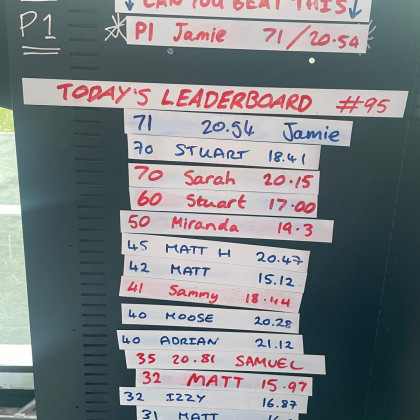 ↓ CAN YOU BEAT THIS ↓
P1
P1 Jamie 71/20.54
TODAY'S LEADERBOARD #95
71 20.54 Jamie
70 STUART 18.41
70 Sarah 20.15
60 Stuart 17.00
50 Miranda 19.3
45 MATT H 20.47
42 MATT 15.12
41 Sammy 18.44
40 MOOSE 20.28
40 ADRIAN 21.12
35 20.81 SAMUEL
32 MATT 15.97
32 IZZY 16.87
31 MATT